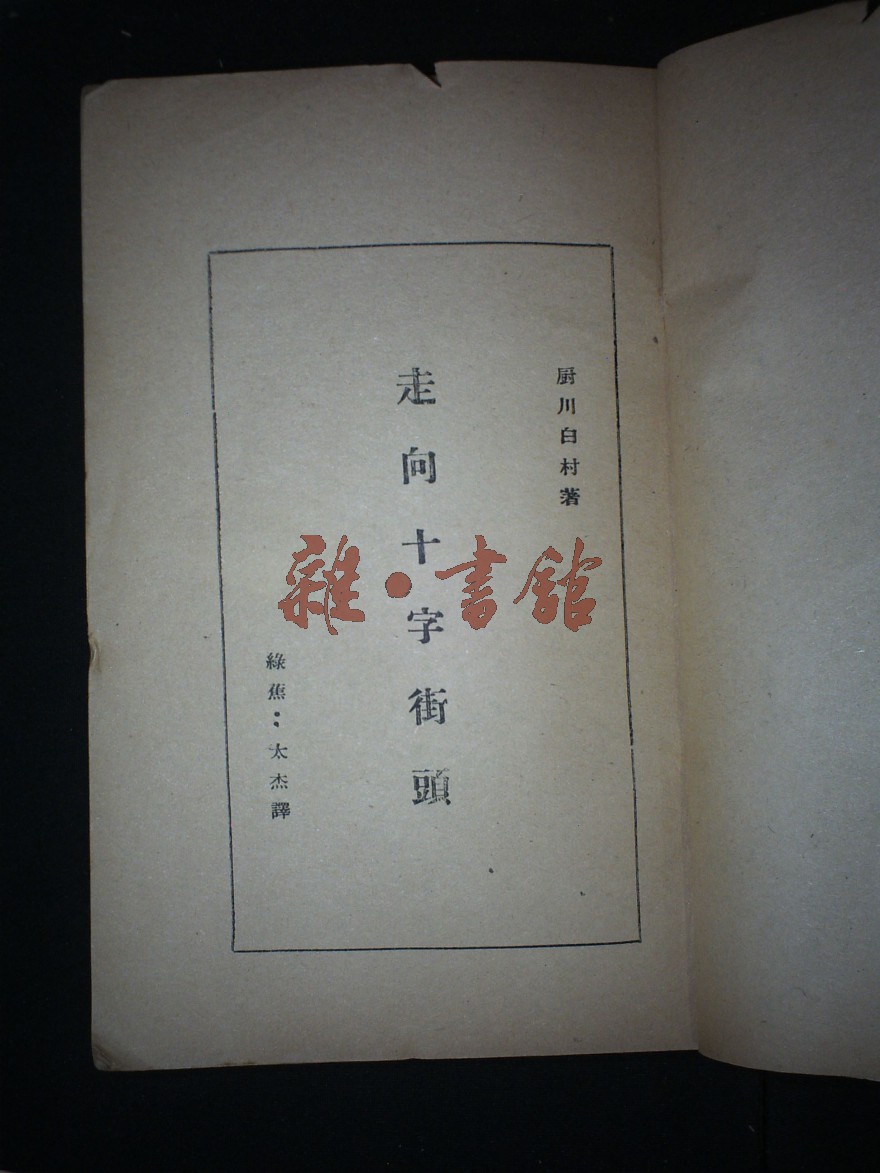 厨川白村著
走向十字街頭
綠蕉：太杰譯
雜•書館